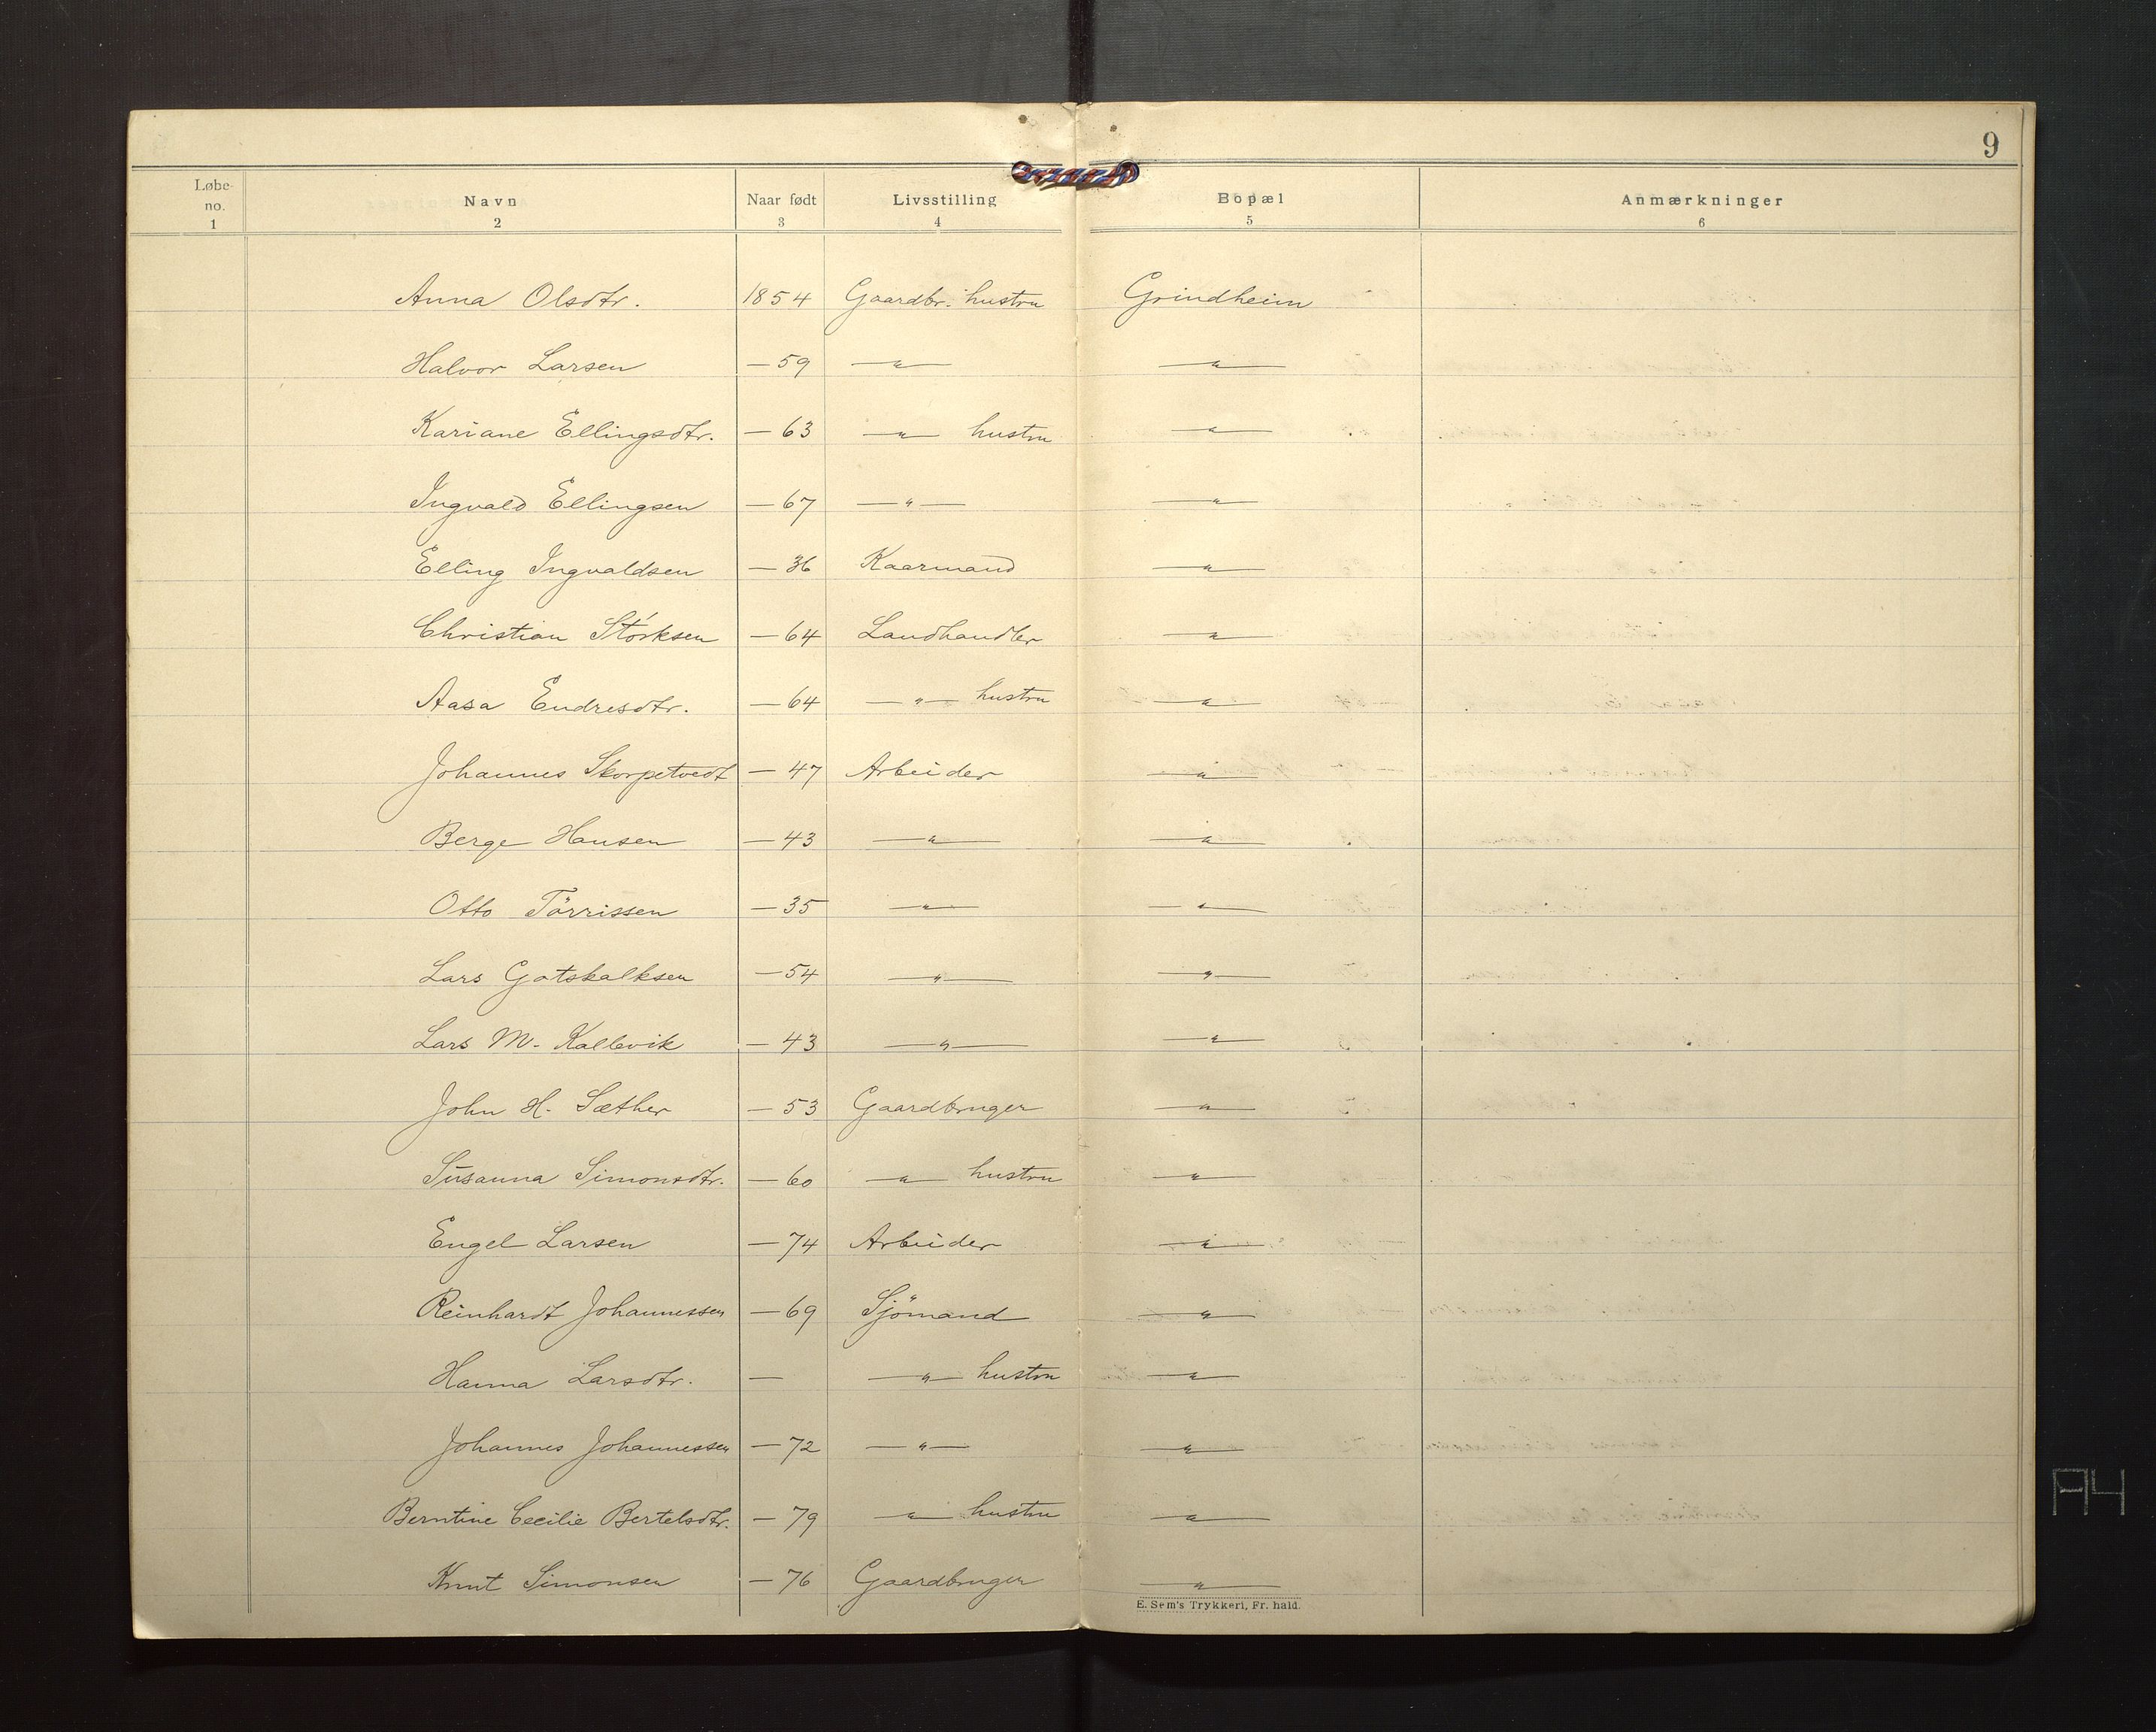 9
Løbe-no. Navn Naar født Livsstilling Bopæl Anmærkninger
1 2 3 4 5 6
Anna Olsdtr. 1854 Gaardbr. hustru Grindheim
Halvor Larsen — 59 —"— —"—
Kariane Ellingsdtr. — 63 —"— hustru —"—
Ingvald Ellingsen — 67 —"— —"—
Elling Ingvaldsen — 36 Kaarmand —"—
Christian Störksen — 64 Landhandler —"—
Aasa Endresdtr. — 64 —"— hustru —"—
Johannes Skorpetvedt — 47 Arbeider —"—
Berge Hansen — 43 —"— —"—
Otto Törrissen — 35 —"— —"—
Lars Gotskalksen — 54 —"— —"—
Lars M. Kallevik — 43 —"— —"—
John H. Sæther — 53 Gaardbruger —"—
Susanna Simonsdtr. — 60 —"— hustru —"—
Engel Larsen — 74 Arbeider —"—
Reinhardt Johannessen — 69 Sjömand —"—
Hanna Larsdtr. — —"— hustru —"—
Johannes Johannessen — 72 —"— —"—
Berntine Cecilie Bertelsdtr. — 79 —"— hustru —"—
Knut Simonsen — 76 Gaardbruger —"—
E. Sem's Trykkeri, Fr. hald.
A4